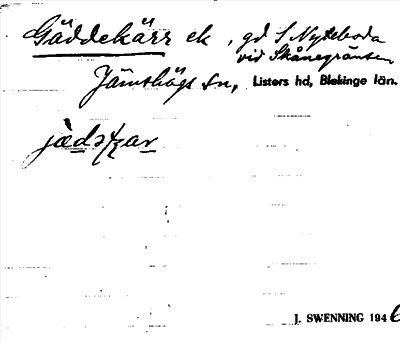 Gäddekärr ek, gd S Nyteboda
vid Skånegränsen
Jämshögs sn, Listers hd, Blekinge län.
J. SWENNING 1946